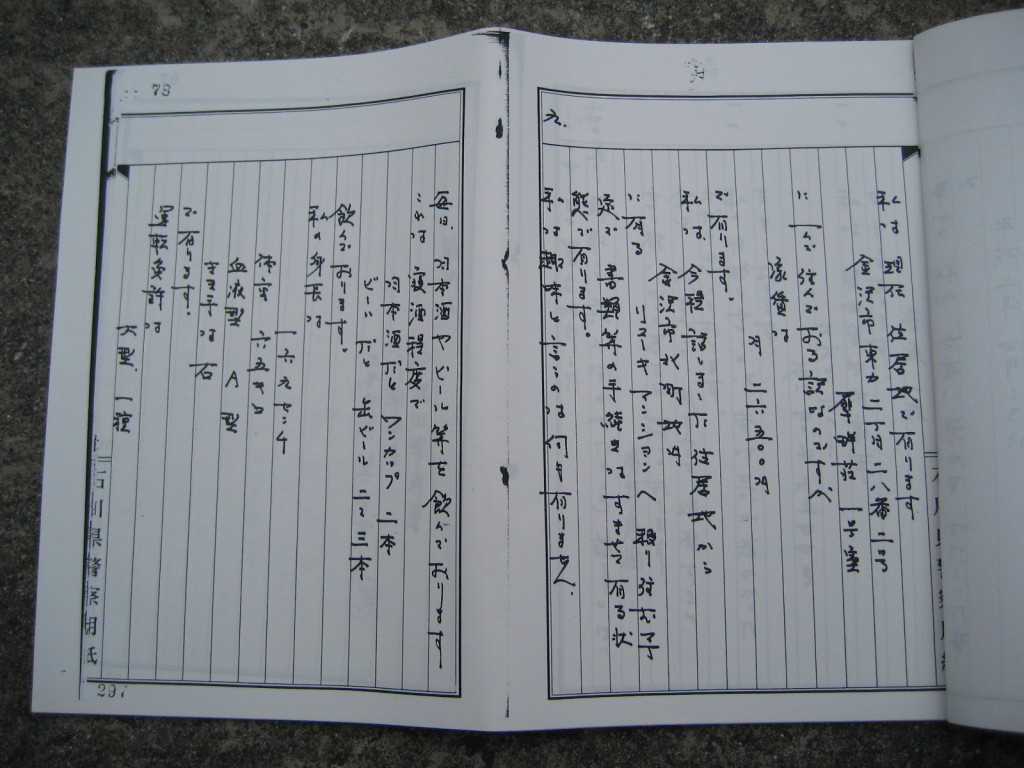 九、
私は現在住居地で有ります
金沢市東力二丁目二八番二号
一号室
に住んでおる訳なのですが
家賃は
月二六、五〇〇円
で有ります。
私は、今現訴しました住居地から
金沢市 町地内
に有る マンションへ移り住む予
定で書類等の手続きはすませて有る状
態で有ります。
私は趣味と言うのは何も有りません。
毎日、日本酒やビール等を飲んでおります
このは寝酒程度で
日本酒だとワンカップ二本
ビールだと缶ビール二〜三本
飲んでおります。
私の身長は
一六九センチ
体重 六五キロ
血液型 A型
きき手は右
で有ります。
運転免許は
大型、一種
石川県警察用紙
78
297